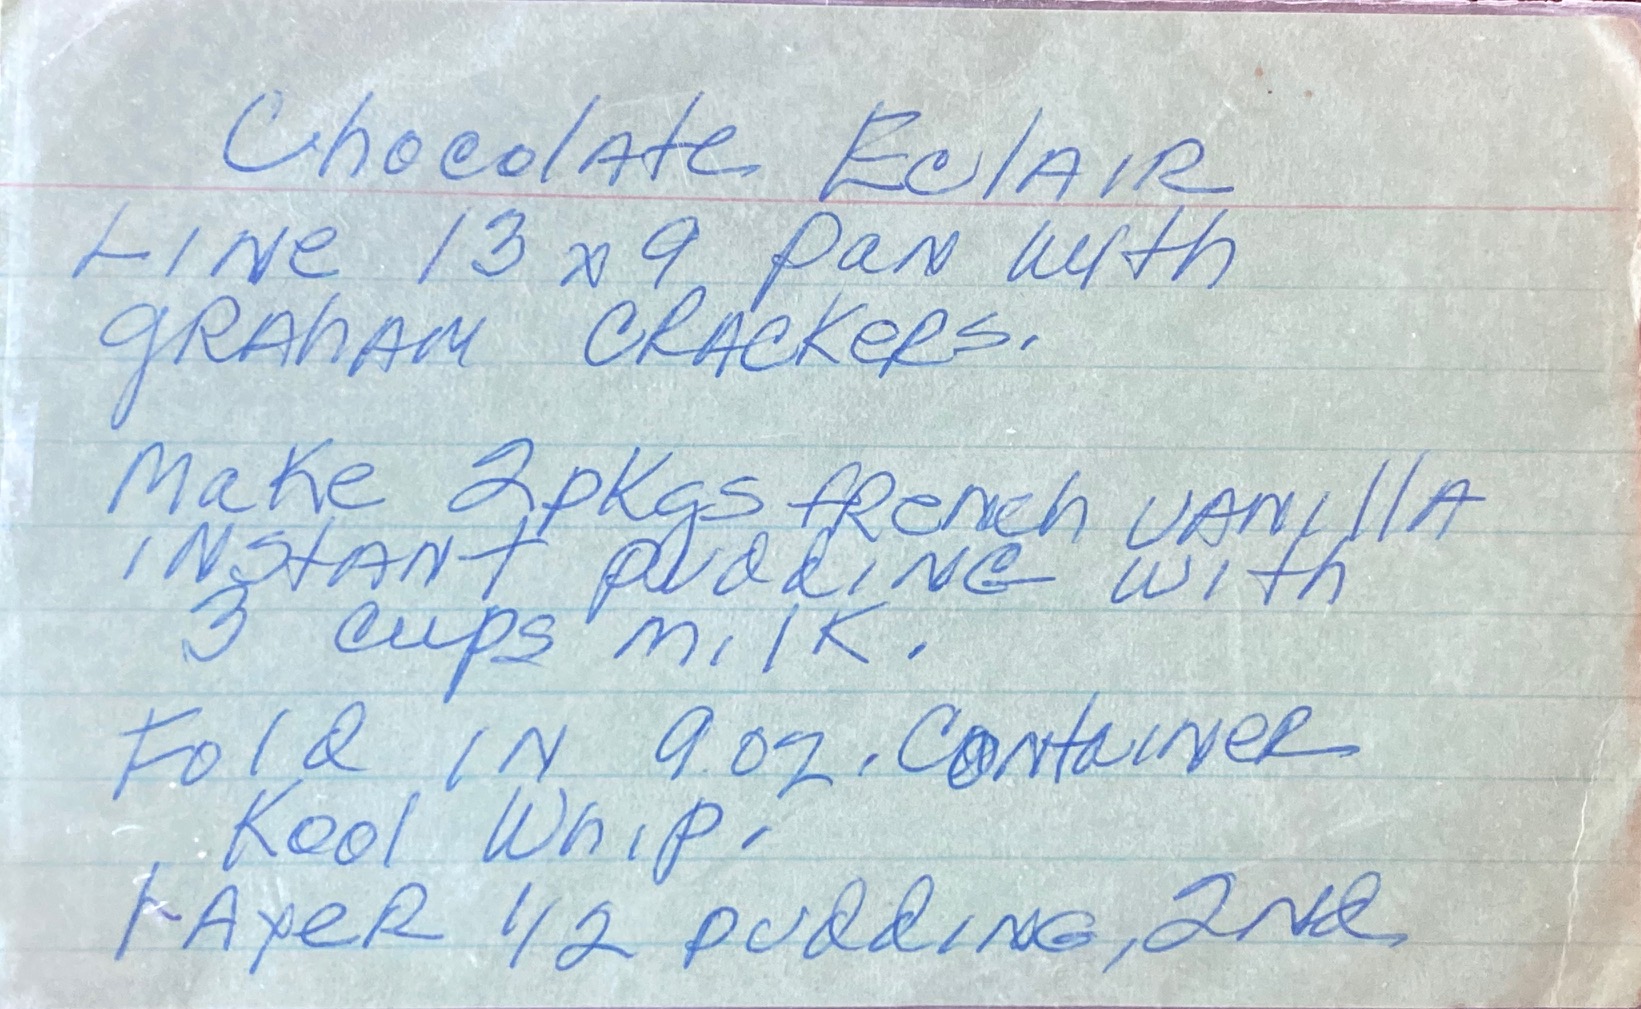 Chocolate Eclair
Line 13 x 9 pan with
graham crackers.
Make 2 pkgs french vanilla
instant pudding with
3 cups milk.
Fold in 9.oz. Container
Kool Whip.
Layer 1/2 pudding, 2nd